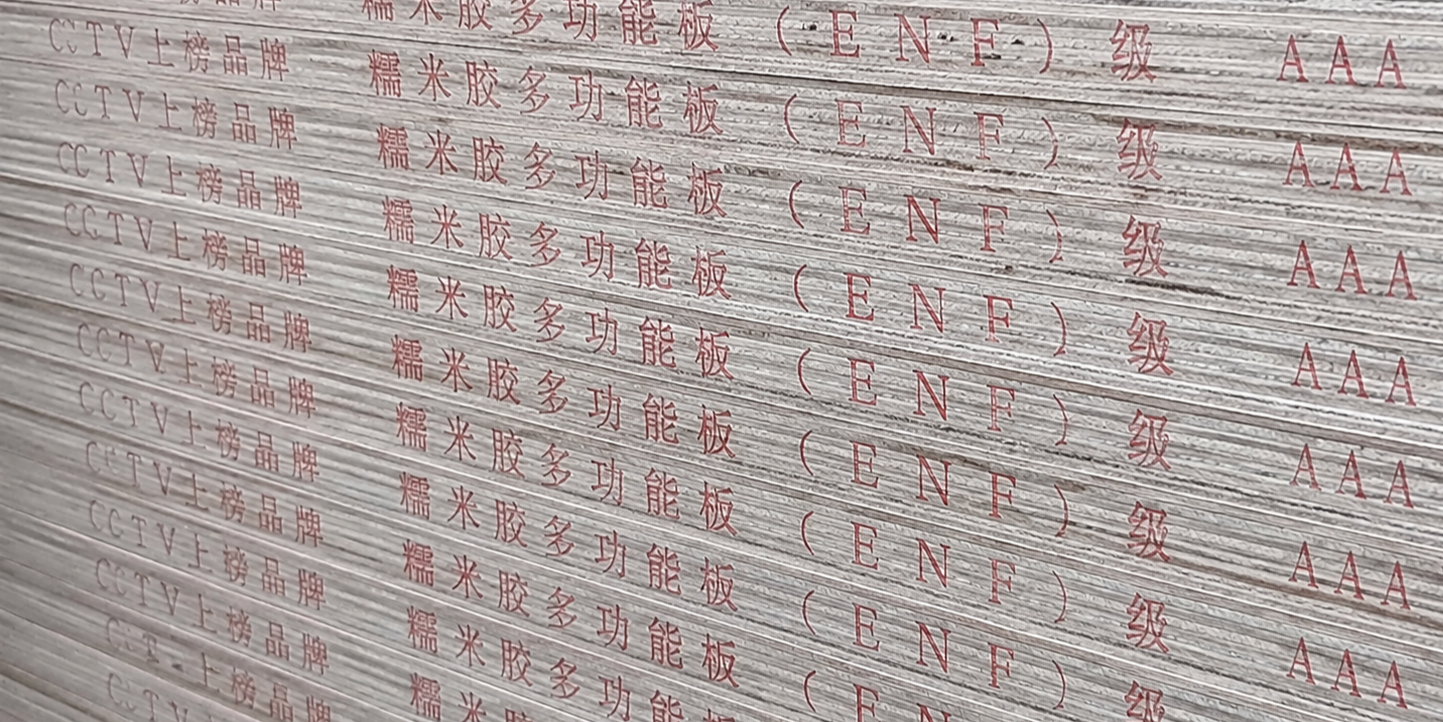 品牌 糯米胶多功能板（ENF）级 AAA
CCTV上榜品牌 糯米胶多功能板（ENF）级 AAA
CCTV上榜品牌 糯米胶多功能板（ENF）级 AAA
CCTV上榜品牌 糯米胶多功能板（ENF）级 AAA
CCTV上榜品牌 糯米胶多功能板（ENF）级 AAA
CCTV上榜品牌 糯米胶多功能板（ENF）级 AAA
CCTV上榜品牌 糯米胶多功能板（ENF）级 AAA
CCTV上榜品牌 糯米胶多功能板（ENF）级
CCTV上榜品牌 糯米胶多功能板（EN
CCTV上榜品牌 糯米胶多功能板
CCTV上榜品牌 糯米
上榜品牌
CCTV